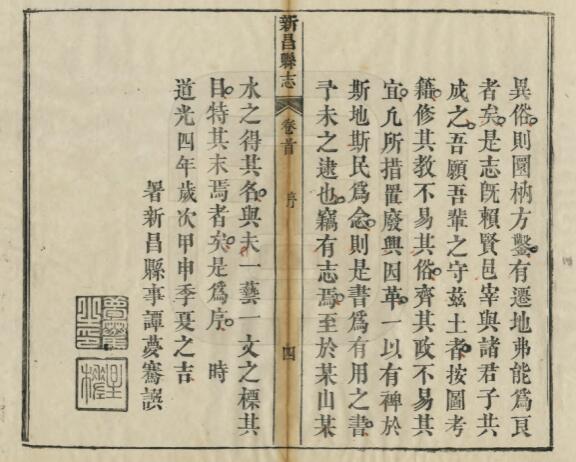 異俗則圜枘方鑿有遷地弗能爲良
者矣是志旣賴賢邑宰與諸君子共
成之吾願吾輩之守茲土者按圖考
籍修其教不易其俗齊其政不易其
宜凡所措置廢興因革一以有裨於
斯地斯民爲念則是書爲有用之書
予未之逮也竊有志焉至於某山某
新昌縣志
卷首
序
四
水之得其名與夫一藝一文之標其
目特其末焉者矣是爲序 時
道光四年歲次甲申季夏之吉
署新昌縣事譚夢騫譔